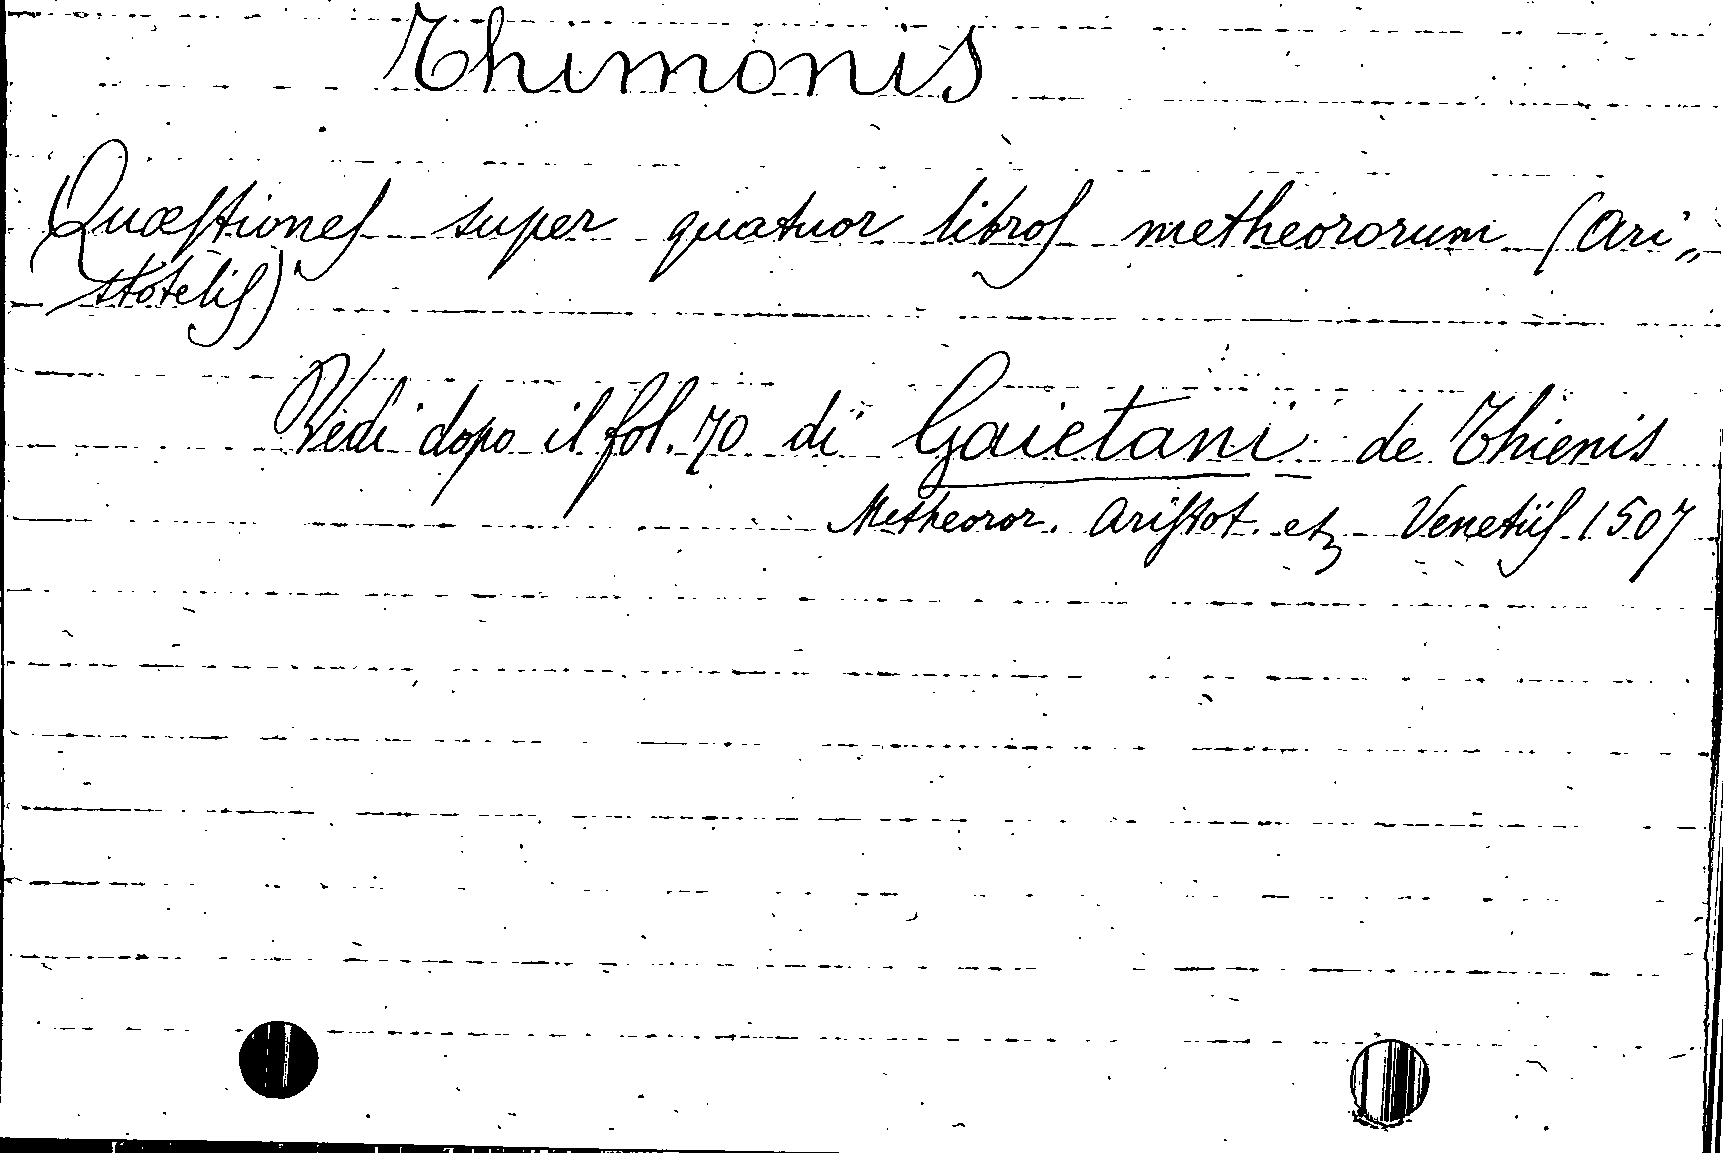 Thimonis
Quæstiones super quatuor libros metheororum (Ari„
stotelis)
Vedi dopo il fol. 70 di Gaietani de Thienis
Metheoror. Aristot. etz Venetiis 1507